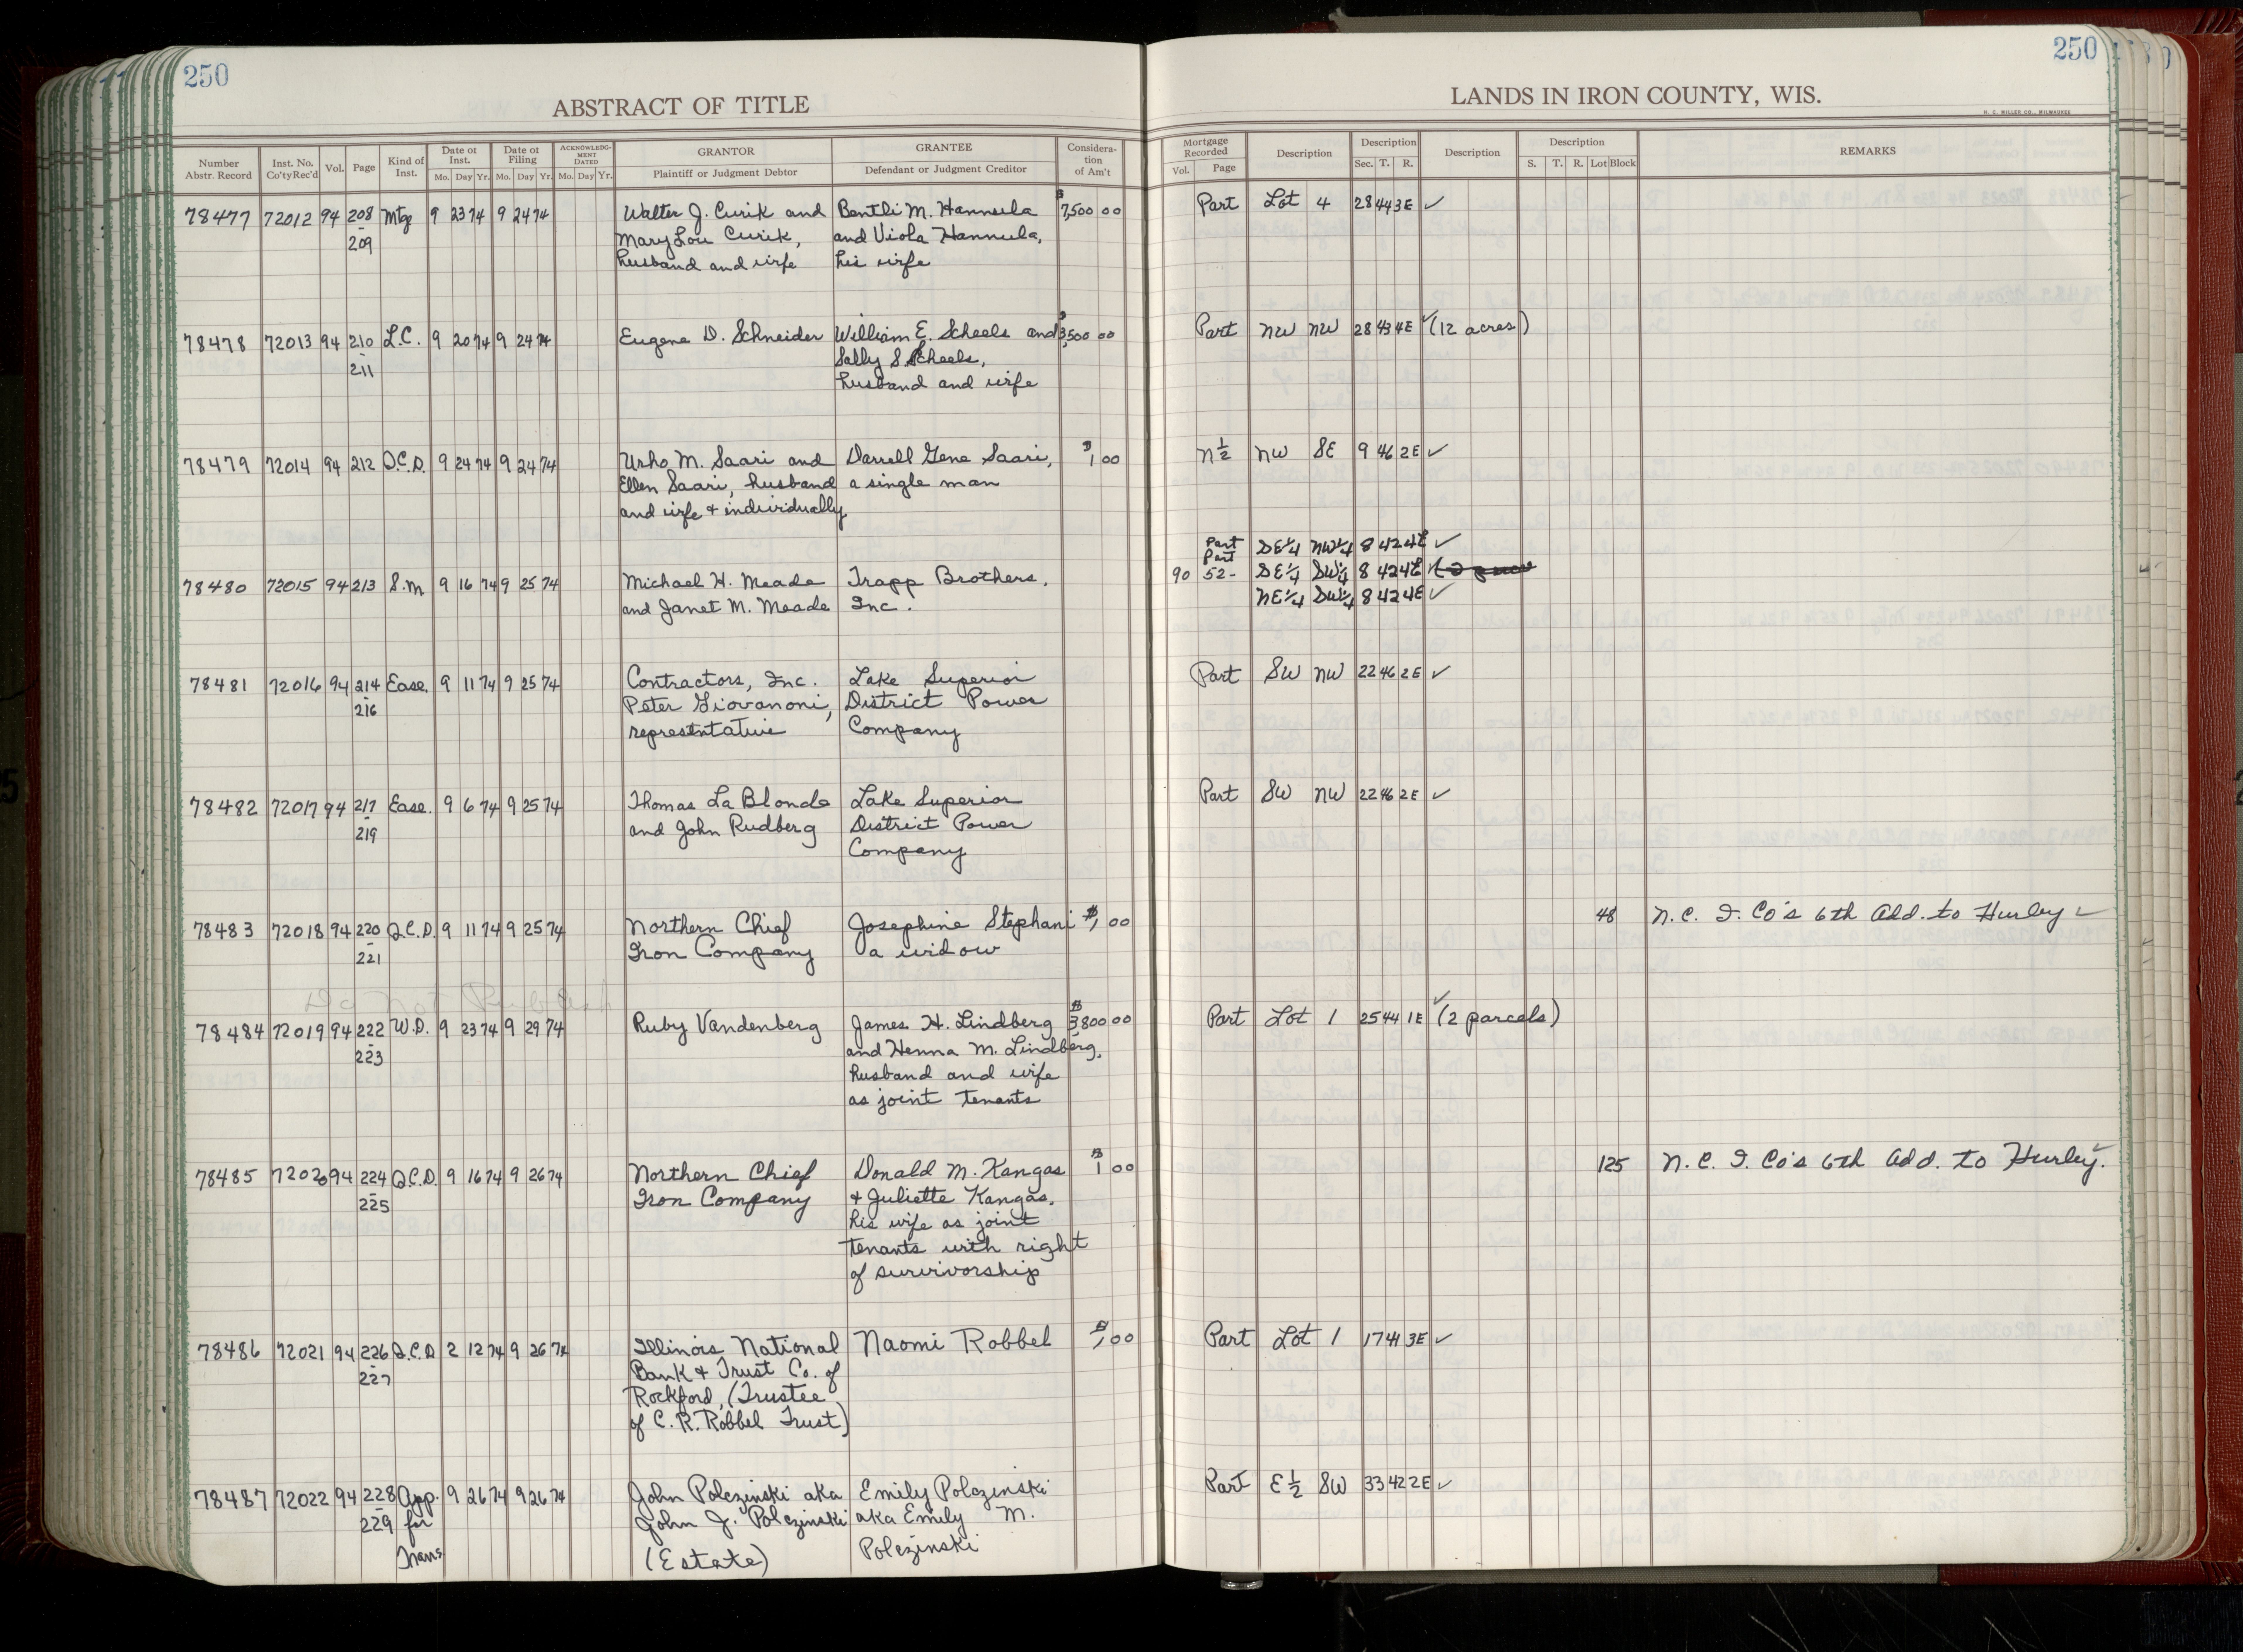 250
ABSTRACT OF TITLE
Number Abstr. Record | Inst. No. Co'ty Rec'd | Vol. | Page | Kind of Inst. | Date of Inst. Mo. Day Yr. | Date of Filing Mo. Day Yr. | ACKNOWLEDGMENT DATED Mo. Day Yr. | GRANTOR Plaintiff or Judgment Debtor | GRANTEE Defendant or Judgment Creditor | Consideration of Am't
78477 72012 94 208 Mtg 9 23 74 9 24 74 Walter J. Curik and Bentli M. Hannula $7,500 00
- 209 Mary Lou Curik, and Viola Hannula,
husband and wife his wife
78478 72013 94 210 L.C. 9 20 74 9 24 74 Eugene D. Schneider William E. Scheels and $3,500 00
- 211 Sally S. Scheels,
husband and wife
78479 72014 94 212 Q.C.D. 9 24 74 9 24 74 Urho M. Saari and Darrell Gene Saari, $1 00
Ellen Saari, husband a single man
and wife + individually
78480 72015 94 213 S.M 9 16 74 9 25 74 Michael H. Meade Trapp Brothers,
and Janet M. Meade Inc.
78481 72016 94 214 Ease. 9 11 74 9 25 74 Contractors, Inc. Lake Superior
- 216 Peter Giovanoni, District Power
representative Company
78482 72017 94 217 Ease. 9 6 74 9 25 74 Thomas La Blonde Lake Superior
- 219 and John Rudberg District Power
Company
78483 72018 94 220 Q.C.D. 9 11 74 9 25 74 Northern Chief Josephine Stephani $1 00
- 221 Iron Company a widow
Do Not Publish
78484 72019 94 222 W.D. 9 23 74 9 29 74 Ruby Vandenberg James H. Lindberg $3,800 00
- 223 and Henna M. Lindberg,
husband and wife
as joint tenants
78485 72020 94 224 Q.C.D. 9 16 74 9 26 74 Northern Chief Donald M. Kangas $1 00
- 225 Iron Company + Juliette Kangas,
his wife as joint
tenants with right
of survivorship
78486 72021 94 226 Q.C.D 2 12 74 9 26 74 Illinois National Naomi Robbel $1 00
- 227 Bank + Trust Co. of
Rockford, (Trustee
of C. R. Robbel Trust)
78487 72022 94 228 App. 9 26 74 9 26 74 John Polczinski aka Emily Polczinski
- 229 for John J. Polczinski aka Emily M.
Trans (Estate) Polczinski
250
LANDS IN IRON COUNTY, WIS.
H. C. MILLER CO., MILWAUKEE
Mortgage Recorded Vol. Page | Description | Description Sec. T. R. | Description | Description S. T. R. Lot Block | REMARKS
Part Lot 4 28 44 3E ✓
Part NW NW 28 43 4E ✓ (12 acres)
N 1/2 NW SE 9 46 2E ✓
Part SE1/4 NW1/4 8 42 4E ✓
Part
90 52- SE1/4 SW1/4 8 42 4E ✓
NE1/4 SW1/4 8 42 4E ✓
Part SW NW 22 46 2E ✓
Part SW NW 22 46 2E ✓
48 N. C. I. Co's 6th Add. to Hurley ✓
Part Lot 1 25 44 1E ✓ (2 parcels)
125 N. C. I. Co's 6th Add. to Hurley. ✓
Part Lot 1 17 41 3E ✓
Part E 1/2 SW 33 42 2E ✓